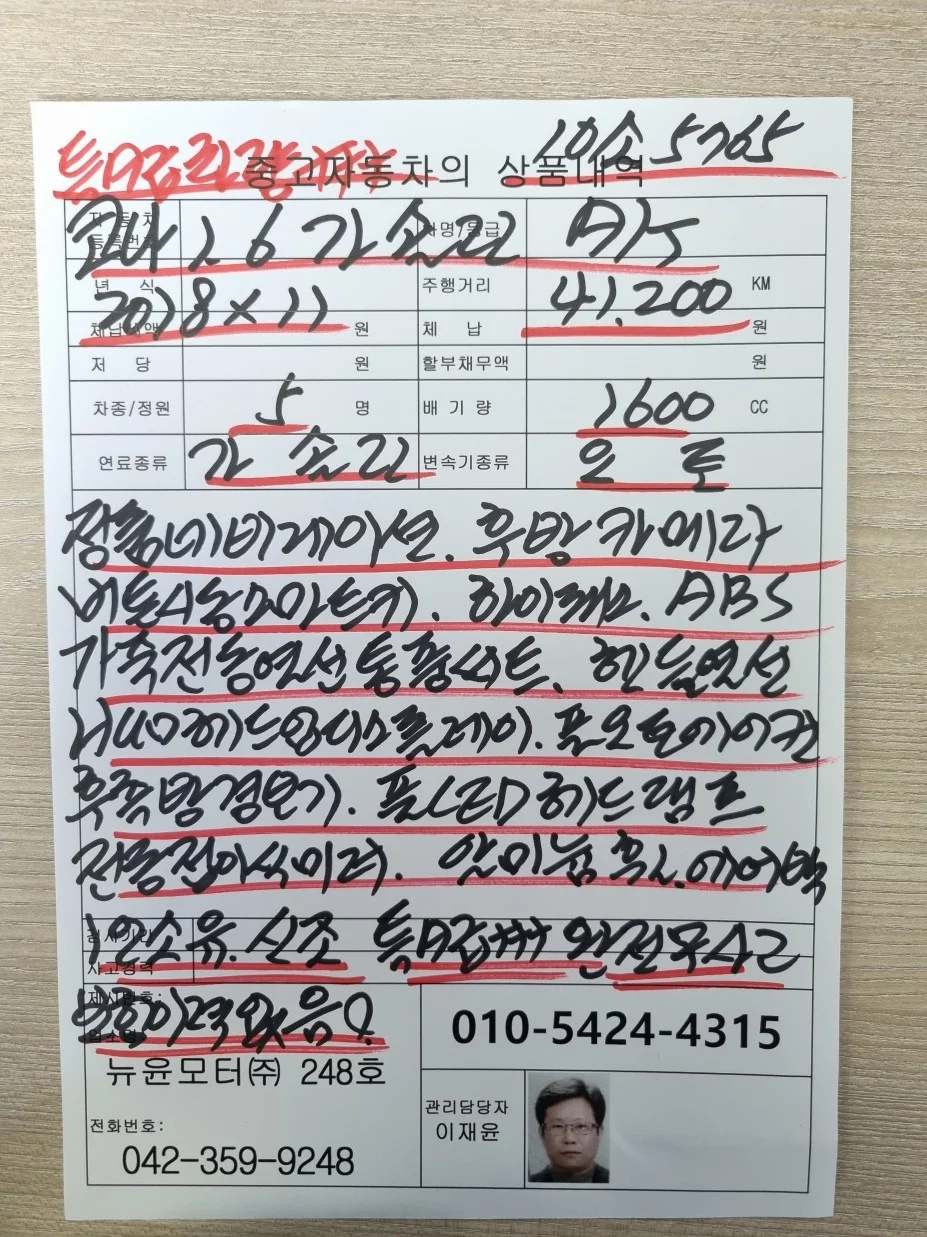 10소5765
특A급최강추천
중고자동차의 상품내역
자동차 등록번호 차명/등급
코나 1.6 가솔린 A/S
년 식 주행거리 41,200 KM
2018×11
체납세액 원 체 납 원
저 당 원 할부채무액 원
차종/정원 5 명 배 기 량 1600 CC
연료종류 가솔린 변속기종류 오토
정품네비게이션. 후방카메라
버튼시동스마트키. 하이패스. ABS
가죽전동열선통풍시트. 핸들열선
HUD헤드업디스플레이. 풀오토에어컨
후측방경보기. 풀LED헤드램프
전동접이식미러. 알미늄휠. 에어백
검사기간
1인소유.신조 특A급+++ 완전무사고
사고경력
제시번호:
보험이력없음
뉴윤모터㈜ 248호
010-5424-4315
관리담당자
이재윤
전화번호:
042-359-9248